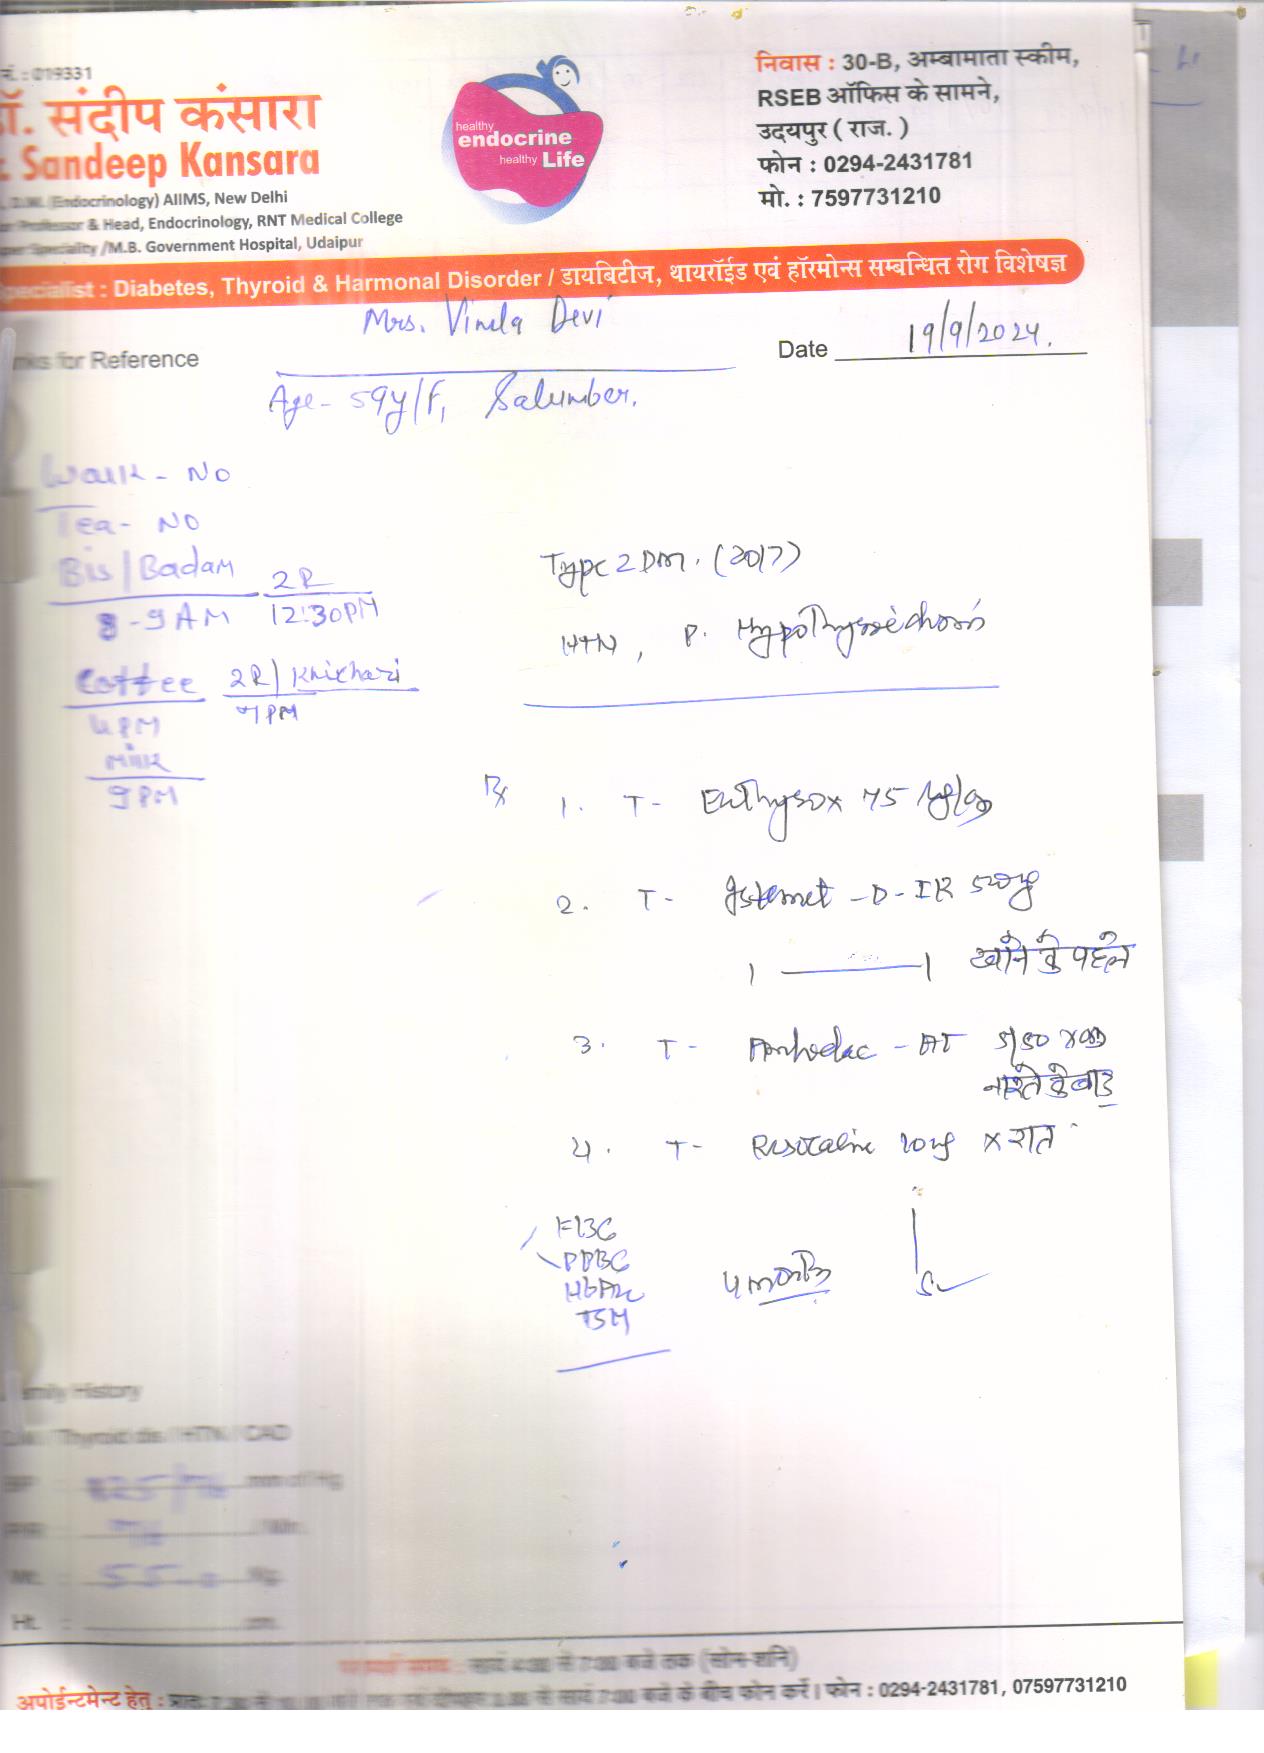 नं. : 019331
डॉ. संदीप कंसारा
Sandeep Kansara
(Endocrinology) AIIMS, New Delhi
Professor & Head, Endocrinology, RNT Medical College
Super Speciality /M.B. Government Hospital, Udaipur
healthy
endocrine
healthy Life
निवास : 30-B, अम्बामाता स्कीम,
RSEB ऑफिस के सामने,
उदयपुर ( राज. )
फोन : 0294-2431781
मो. : 7597731210
Specialist : Diabetes, Thyroid & Harmonal Disorder / डायबिटीज, थायरॉईड एवं हॉरमोन्स सम्बन्धित रोग विशेषज्ञ
Mrs. Vimla Devi
for Reference
Date 19/9/2024.
Age - 59y/F, Salumber.
Walk - NO
Tea - NO
Bis/Badam 2R
8-9AM 12:30PM
Coffee 2R/Khichari
4PM 7PM
Milk
9PM
Type 2 DM. (2017)
HTN, P. Hypothyroidism
Rx 1. T- Euthyrox 75
2. T- Istamet -D- IR
1 ———— 1 खाने के पहले
3. T- - AT 5/50
नाश्ते के बाद
4. T- 10mg x रात
FBG
PPBG
HbA1c
TSH
4 months
Family History
D.M. / Thyroid dis / HTN / CAD
BP mm of Hg
Wt. Kg.
Ht. cm.
सायं 4:00 से 7:00 बजे तक (सोम-शनि)
अपोईन्टमेन्ट हेतु : से सायं 7:00 बजे के बीच फोन करें। फोन : 0294-2431781, 07597731210